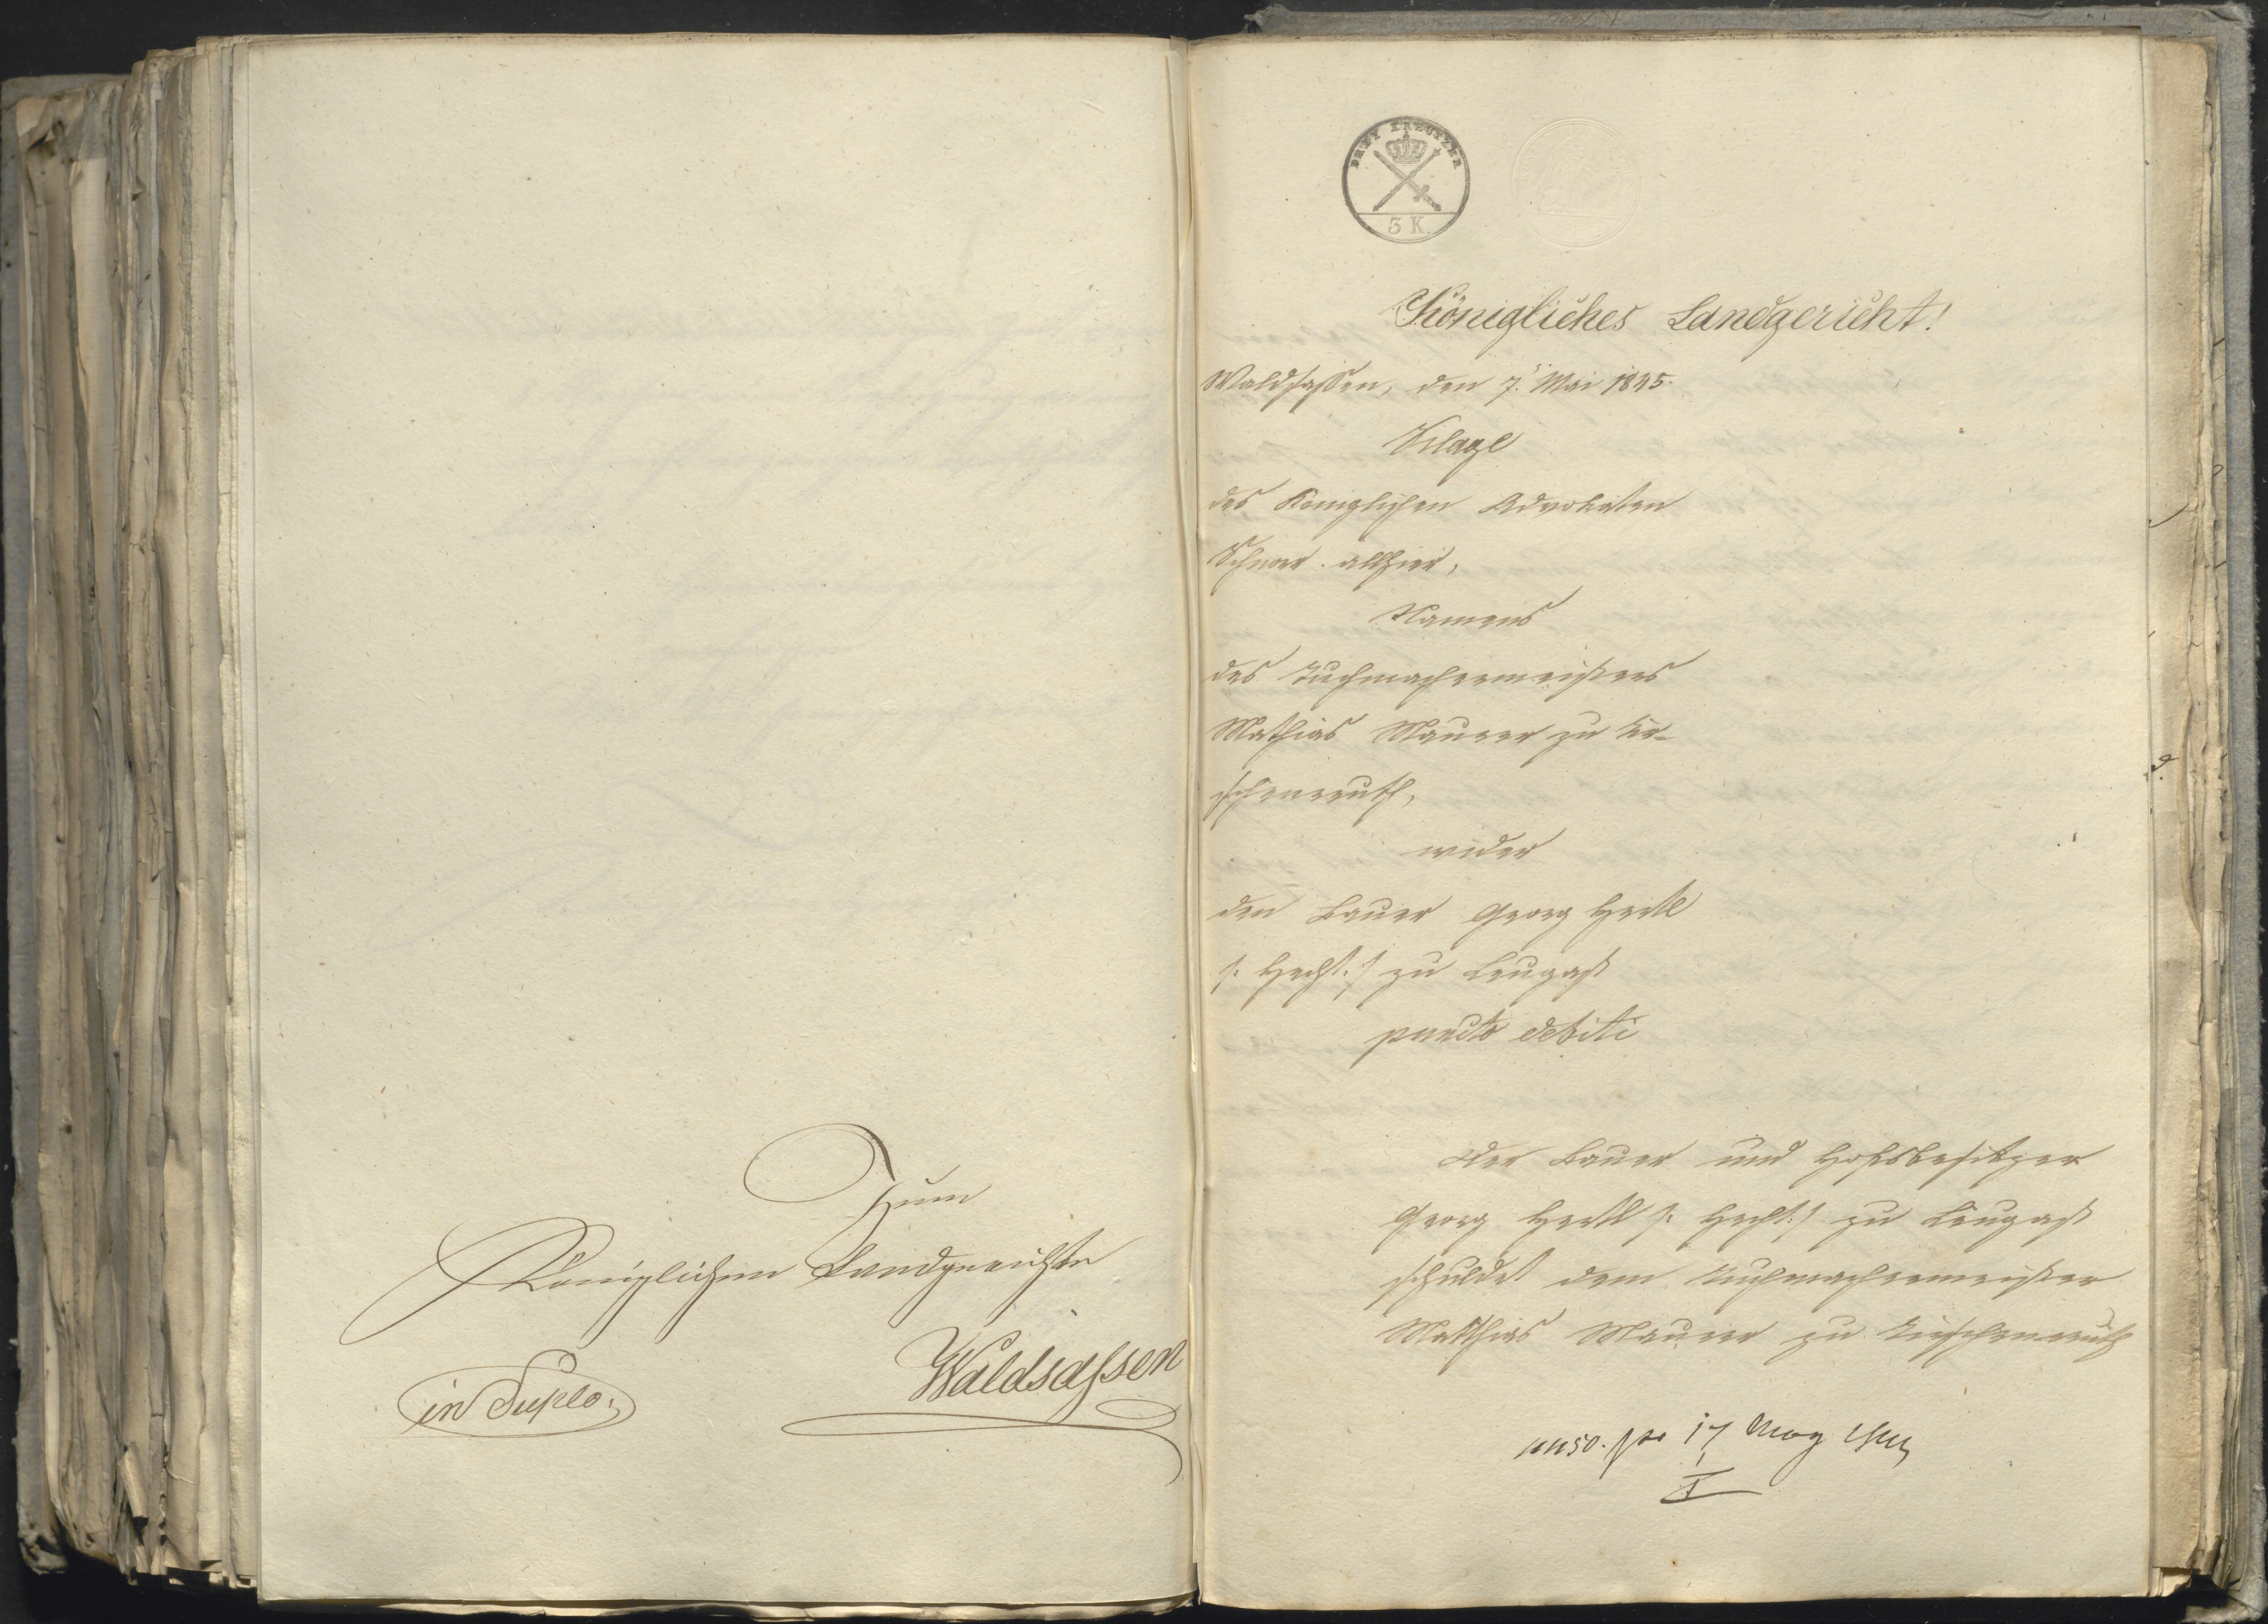 Zum
Königlichen Landgerichte
Waldsassen
in Duplo.
DREY KREUTZER
3 K.
Königliches Landgericht!
Waldsassen, den 7. Mai 1845.
Klage
des Königlichen Advokaten
allhier,
Namens
des Tuchmachermeisters
Mathias Maurer zu Tir-
schenreuth,
wider
den Bauer Georg Hertl
/: Hecht :/ zu Leugast
puncto debiti
Der Bauer und Hofsbesitzer
Georg Hertl /: Hecht :/ zu Leugast
schuldet dem Tuchmachermeister
Matthias Maurer zu Tirschenreuth
17 May
I